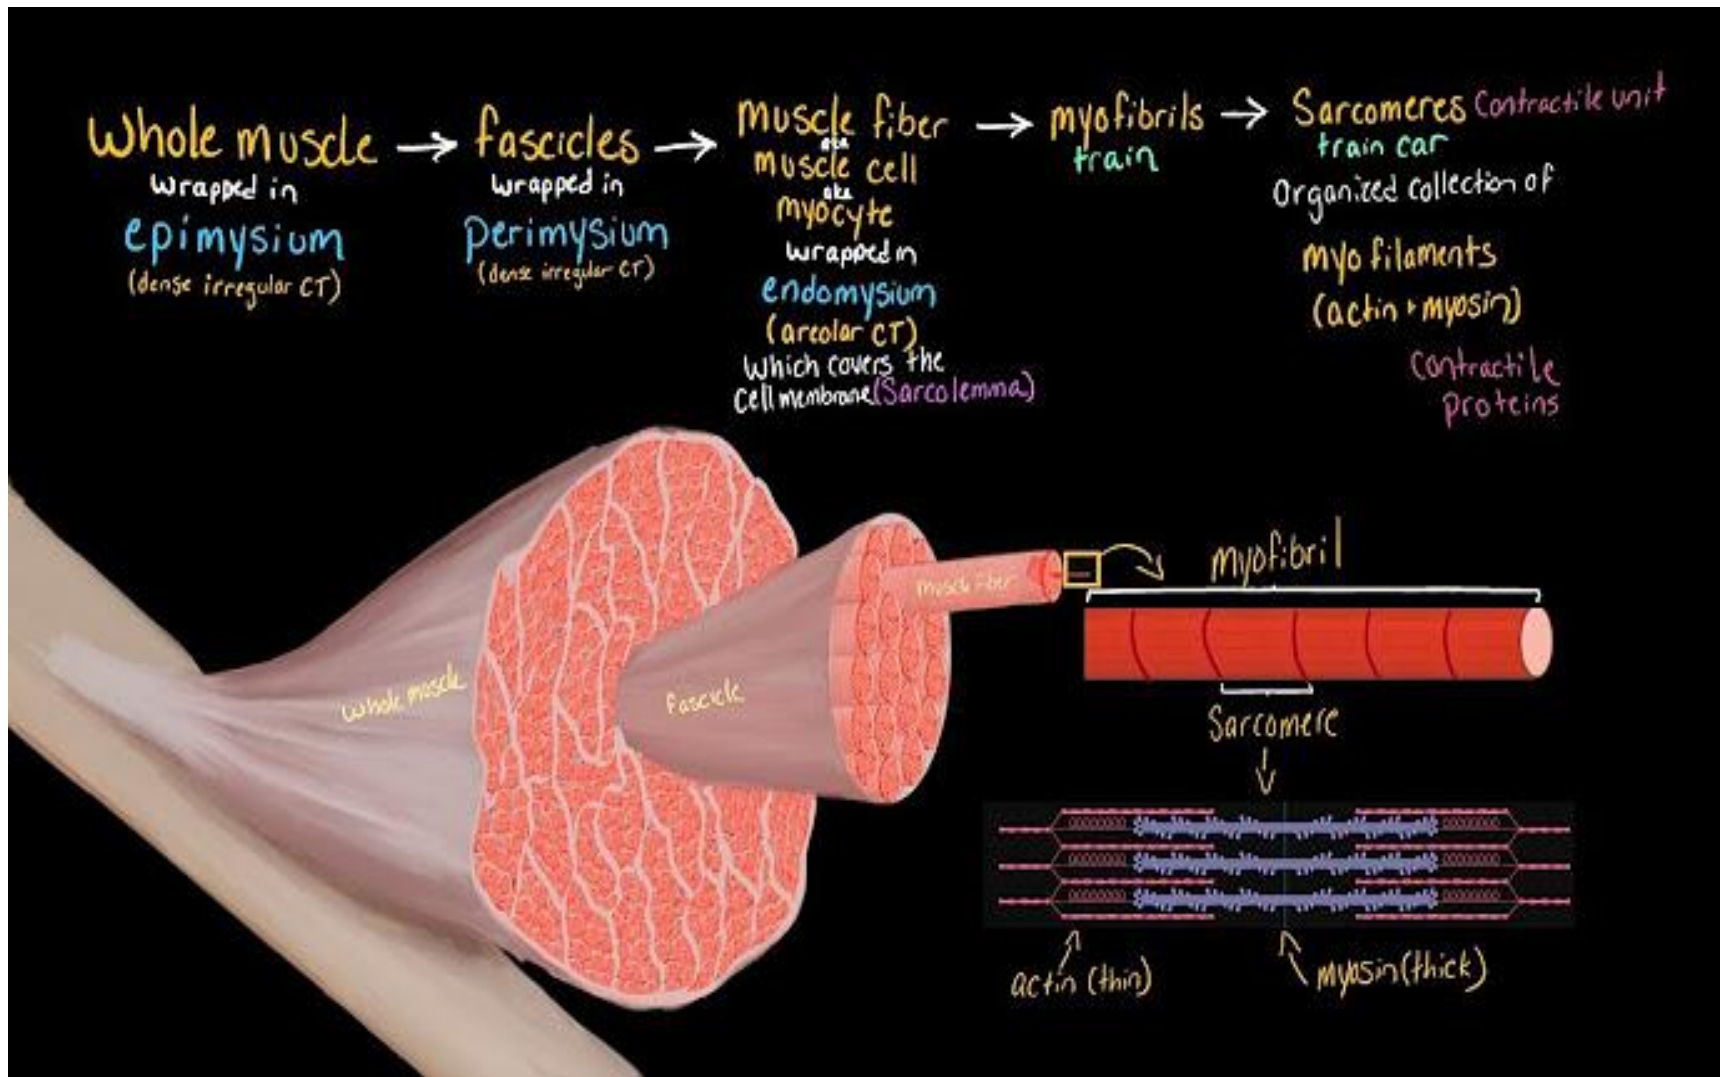 Whole muscle → fascicles → muscle fiber → myofibrils → Sarcomeres Contractile unit
wrapped in
epimysium
(dense irregular CT)
wrapped in
perimysium
(dense irregular CT)
aka
muscle cell
aka
myocyte
wrapped in
endomysium
(areolar CT)
which covers the
cell membrane (Sarcolemma)
train
train car
Organized collection of
myofilaments
(actin + myosin)
contractile
proteins
whole muscle
fascicle
muscle fiber
myofibril
Sarcomere
actin (thin)
myosin (thick)